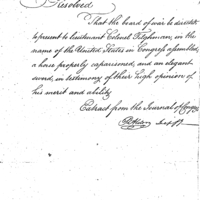 Resolved
That the board of war be directed
to present to Lieutenant Colonel Tilghman, in the
name of the United States in Congress assembled,
a horse properly caparisoned, and an elegant
sword, in testimony of their high opinion of
his merit and ability.
Extract from the Journal of Congress